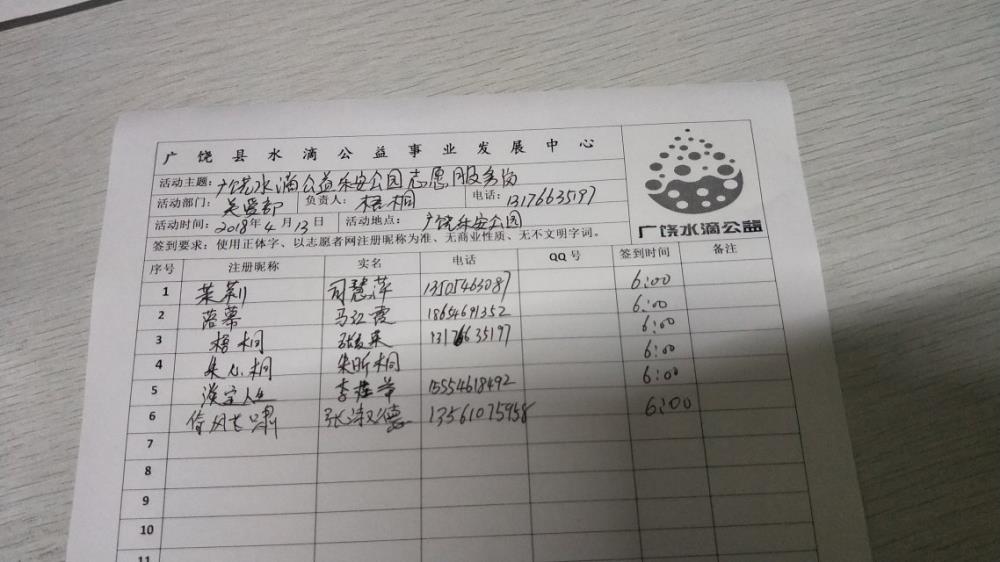 广饶县水滴公益事业发展中心
活动主题：广饶水滴公益乐安公园志愿服务岗
活动部门：关爱部 负责人：梧桐 电话：13176635197
活动时间：2018年4月13日 活动地点：广饶乐安公园
签到要求：使用正体字、以志愿者网注册昵称为准、无商业性质、无不文明字词。
广饶水滴公益
序号 注册昵称 实名 电话 QQ号 签到时间 备注
1 茉莉 司慧萍 13505463087 6:00
2 落幕 马红霞 18654691352 6:00
3 梧桐 13176635197 6:00
4 朱心桐 朱昕桐 6:00
5 15554618492 6:00
6 13561075958 6:00
7
8
9
10
11